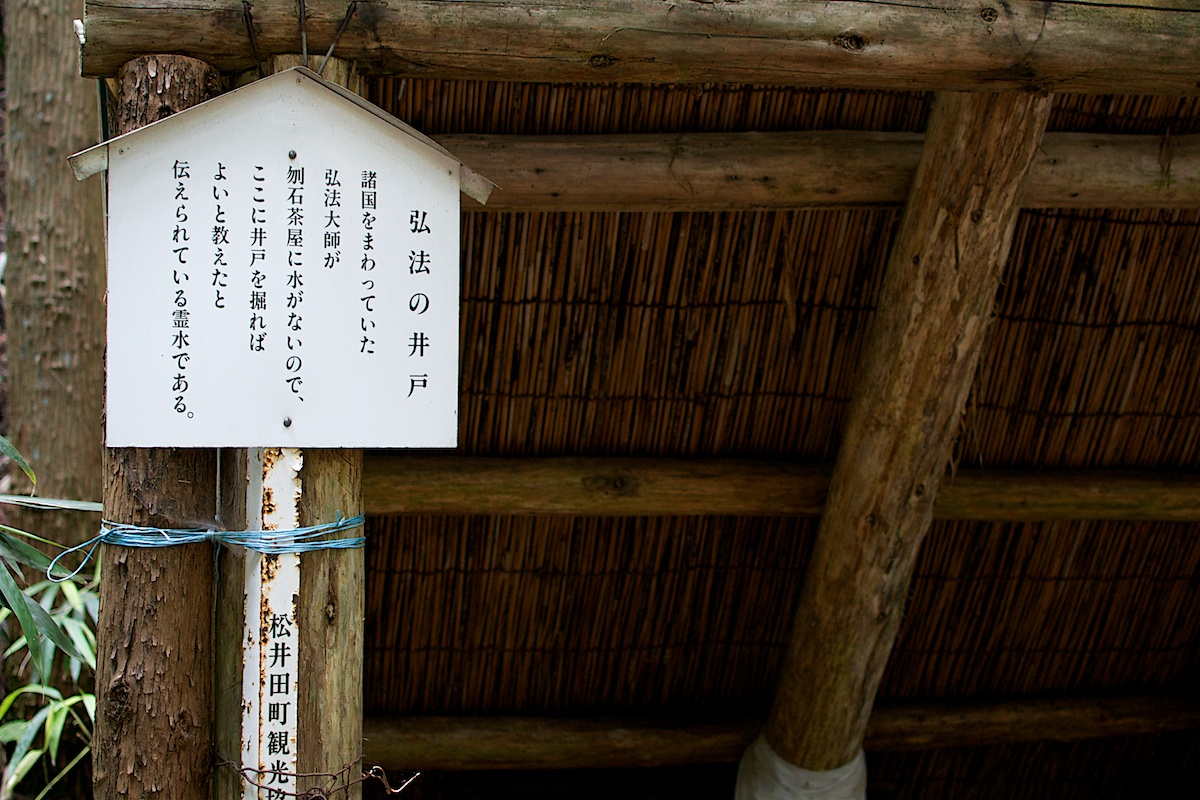 弘法の井戸
諸国をまわっていた
弘法大師が
刎石茶屋に水がないので、
ここに井戸を掘れば
よいと教えたと
伝えられている霊水である。
松井田町観光協